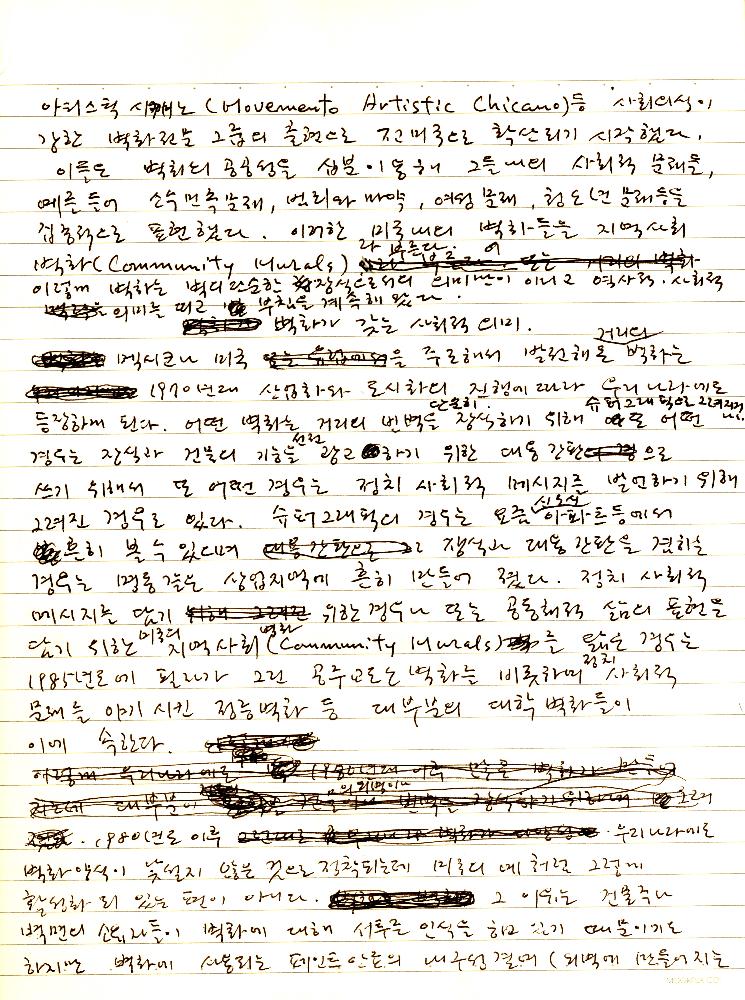 아티스틱 시카노 (Movemento Artistic Chicano)등 사회의식이
강한 벽화전문 그룹의 출현으로 전미국으로 확산되기 시작했다.
이들은 벽화의 공공성을 십분이용해 그들내의 사회적 문제들,
예를들어 소수민족문제, 범죄와 마약, 여성문제, 청소년 문제등을
집중적으로 표현했다. 이러한 미국내의 벽화들을 지역사회
벽화(Community Murals)라 부른다.
이렇게 벽화는 벽의 단순한 장식으로서의 의미만이 아니고 역사적·사회적
의미를 띠고 부침을 계속해 왔다.
벽화가 갖는 사회적 의미.
멕시코나 미국을 주로해서 발전해온 거리의 벽화는
1970년대 산업화와 도시화의 진행에 따라 우리나라에도
등장하게 된다. 어떤 벽화는 거리의 빈벽을 단순히 장식하기 위해 슈퍼그래픽으로 그려지거나 또 어떤
경우는 장식과 건물의 기능을 선전 광고하기 위한 대용간판으로
쓰기 위해서 또 어떤 경우는 정치 사회적 메시지를 발언하기 위해
그려진 경우로 있다. 슈퍼그래픽의 경우는 요즘 신도시 아파트등에서
흔히 볼 수 있으며 장식과 대용간판을 겸하는
경우는 명동같은 상업지역에 흔히 만들어 졌다. 정치 사회적
메시지를 담기 위한경우나 또는 공동체적 삶의 표현을
담기 위한 미국의 지역사회벽화(Community Murals)를 닮은 경우는
1985년도에 필자가 그린 공주교도소벽화를 비롯하여 정치 사회적
문제를 야기 시킨 정릉벽화 등 대부분의 대학 벽화들이
이에 속한다.
1980년도 이후 우리나라에도
벽화양식이 낯설지 않은 것으로 정착되는데 미국의 예처럼 그렇게
활성화 되 있는 편이 아니다. 그 이유는 건물주나
벽면의 소유자들이 벽화에 대해 서투른 인식을 하고 있기 때문이기도
하지만 벽화에 사용되는 페인트안료의 내구성결여 (외벽에 만들어지는